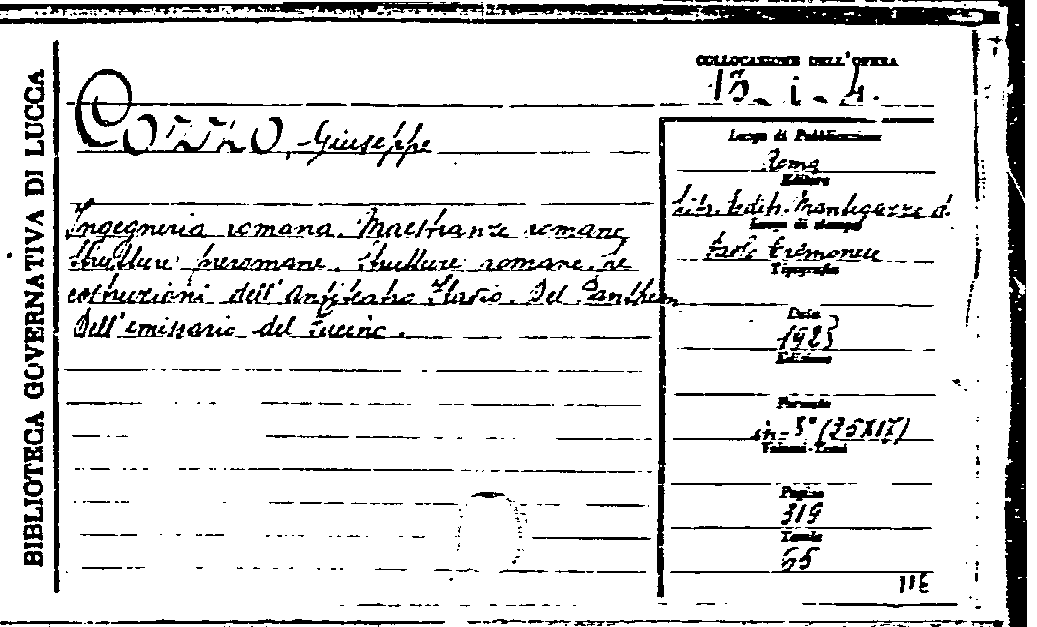 BIBLIOTECA GOVERNATIVA DI LUCCA
COLLOCAZIONE DELL'OPERA
13. i. 4.
Cozzo, Giuseppe
Ingegneria romana. Maestranze romane
Strutture preromane. Strutture romane. Le
costruzioni dell'Anfiteatro Flavio. Del Pantheon
Dell'emissario del Fucino.
Luogo di Pubblicazione
Roma
Editore
Libr. Edit. Mantegazza d.
Luogo di stampa
Paolo Cremonese
Tipografia
Data
1923
Edizione
Formato
in-8° (25X17)
Volumi-Tomi
Pagine
319
Tavole